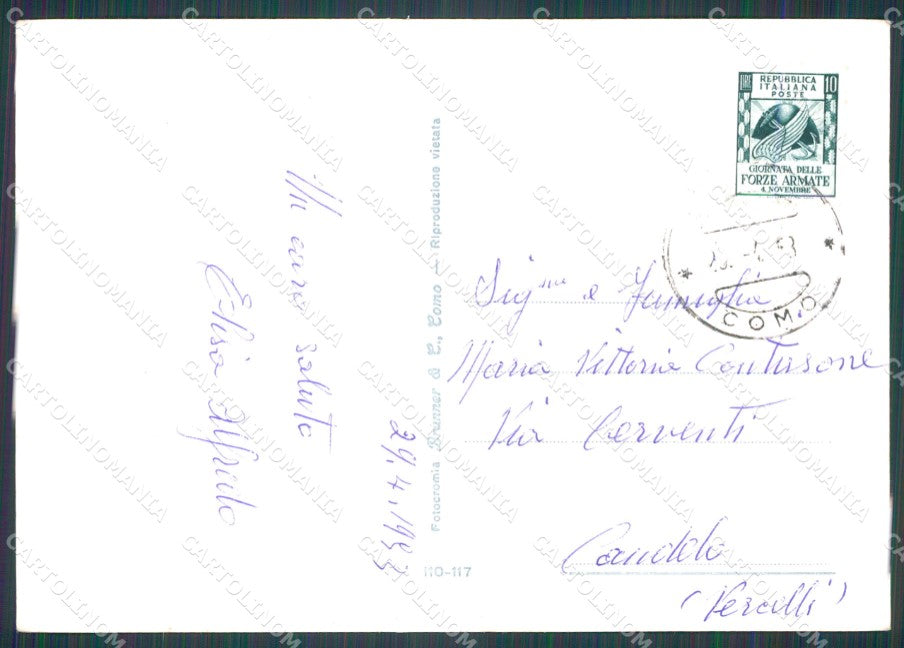 LIRE 10
REPUBBLICA
ITALIANA
POSTE
GIORNATA DELLE
FORZE ARMATE
4 NOVEMBRE
COMO
Un caro saluto
Elisa Alfredo
29.4.1953
Fotocromia Brunner & C., Como — Riproduzione vietata
110-117
Sig.na e Famiglia
Maria Vittoria
Via Cerventi
Candelo
(Vercelli)
CARTOLINOMANIA